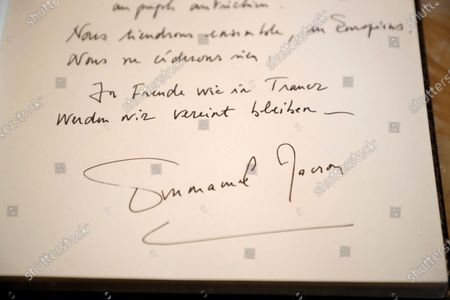 au peuple autrichien.
Nous tiendrons ensemble, en Européens.
Nous ne céderons rien
In Freude wie in Trauer
werden wir vereint bleiben —
Emmanuel Macron
shutterstock